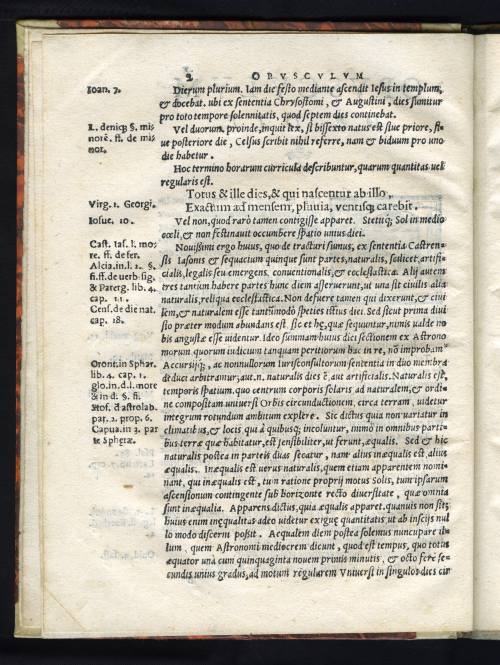 2 OPVSCVLVM
Ioan. 7.
Dierum plurium. Iam die festo mediante ascendit Iesus in templum,
& docebat. ubi ex sententia Chrysostomi, & Augustini, dies sumitur
pro toto tempore solennitatis, quod septem dies continebat.
L. deniq; §. mi
norē. ff. de mi
nor.
Vel duorum. proinde, inquit lex, si bissexto natus est siue priore, si
ue posteriore die, Celsus scribit nihil referre, nam & biduum pro uno
die habetur.
Hoc termino horarum curricula describuntur, quarum quantitas uel
regularis est.
Virg. 1. Georgi.
Totus & ille dies, & qui nascentur ab illo,
Exactum ad mensem, pluuia, ventisq; carebit.
Iosue. 10.
Vel non, quod rarò tamen contigisse apparet. Stetitq; Sol in medio
cœli, & non festinauit occumbere spatio unius diei.
Cast. Ias. l. mo
re. ff. de fer.
Alcia. in. l. 2. §.
fi. ff. de uerb. sig.
& Parerg. lib. 4.
cap. 11.
Cens. de die nat.
cap. 18.
Nouissimi ergo huius, quo de tracturi sumus, ex sententia Castren
sis Iasonis & sequacium quinque sunt partes, naturalis, scilicet artifi
cialis, legalis seu emergens, conuentionalis, & ecclesiastica. Alij autem
tres tantum habere partes hunc diem asseruerunt, ut una sit ciuilis alia
naturalis, reliqua ecclesiastica. Non defuere tamen qui dixerunt, & ciui
lem, & naturalem esse tantūmodò species istius diei. Sed sicut prima diui
sio præter modum abundans est, sic et hę, quæ sequuntur, nimis ualde no
bis angustæ esse uidentur. Ideo summam huius diei sectionem ex Astrono
morum quorum iudicium tanquam peritiorum hac in re, nō improbam9
Oront. in Sphær.
lib. 4. cap. 11.
glo. in. d. l. more
& in d. §. fi.
Stof. d astrolab.
par. 2. prop. 6.
Capua. in 3. par
te Spheræ.
Accursijq;, ac nonnullorum Iurisconsultorum sententia in duo membra
dūci arbitramur, aut. n. naturalis dies ē, aut artificialis. Naturalis est,
temporis spatium, quo centrum corporis solaris ad naturalem, & ordi
ne compositam uniuersi Orbis circunductionem, circa terram, uidetur
integrum rotundum ambitum explere. Sic dictus quia non uariatur in
climatibus, & locis qui à quibusq; incoluntur, immò in omnibus parti
bus terræ quæ habitatur, est sensibiliter, ut ferunt, æqualis. Sed & hic
naturalis postea in parteis duas secatur, nam alius inæqualis est, alius
æqualis. Inæqualis est uerus naturalis, quem etiam apparentem nomi
nant, qui inæqualis est, tum ratione proprij motus Solis, tum ipsarum
ascensionum contingente sub horizonte recto diuersitate, quæ omnia
sunt inæqualia. Apparens dictus, quia æqualis apparet. quanuis non sit;
huius enim ineqqalitas adeo uidetur exiguę quantitatis ut ab inscijs nul
lo modo discerni possit. Aequalem diem postea solemus nuncupare il
lum, quem Astronomi mediocrem dicunt, quod est tempus, quo totus
æquator unà cum quinquaginta nouem primis minutis, & octo ferè se
cundis unius gradus, ad motum regularem Vniuersi in singulos dies cir